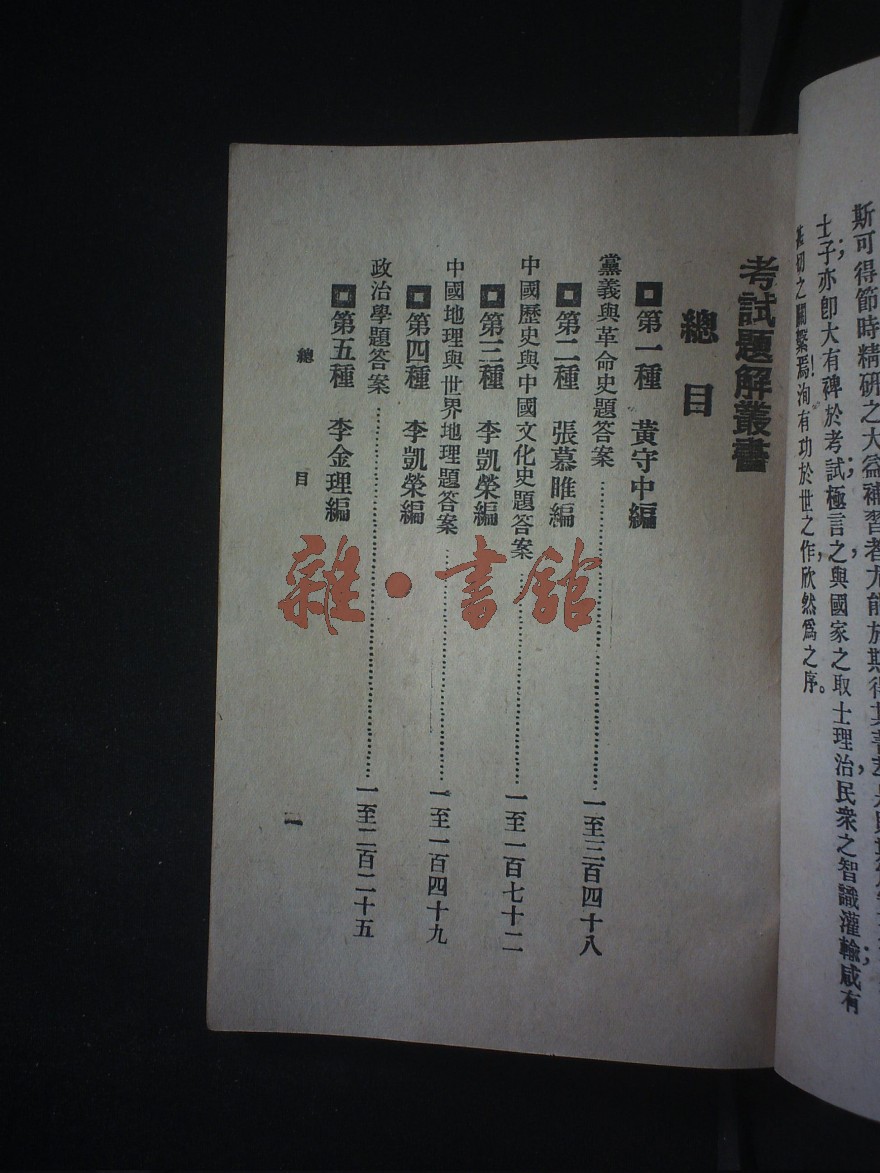 斯可得節時精研之大益補習者尤能於斯得其
士子亦卽大有裨於考試極言之與國家之取士理治民衆之智識灌輸咸有
切之關繫焉洵有功於世之作欣然爲之序。
考試題解叢書
總目
第一種　黃守中編
黨義與革命史題答案……一至三百四十八
第二種　張慕睢編
中國歷史與中國文化史題答案……一至一百七十二
第三種　李凱榮編
中國地理與世界地理題答案……一至一百四十九
第四種　李凱榮編
政治學題答案……一至二百二十五
第五種　李金理編
總目
一
雜·書館